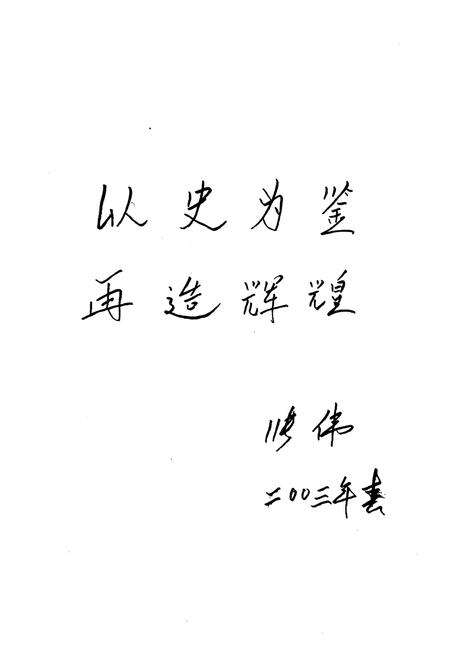 以史为鉴
再造辉煌
张伟
二00三年春